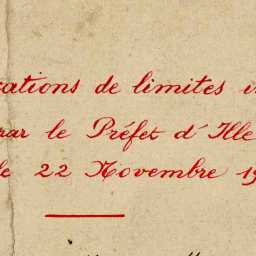 cations de limites i
par le Préfet d'Ille
le 22 Novembre 19